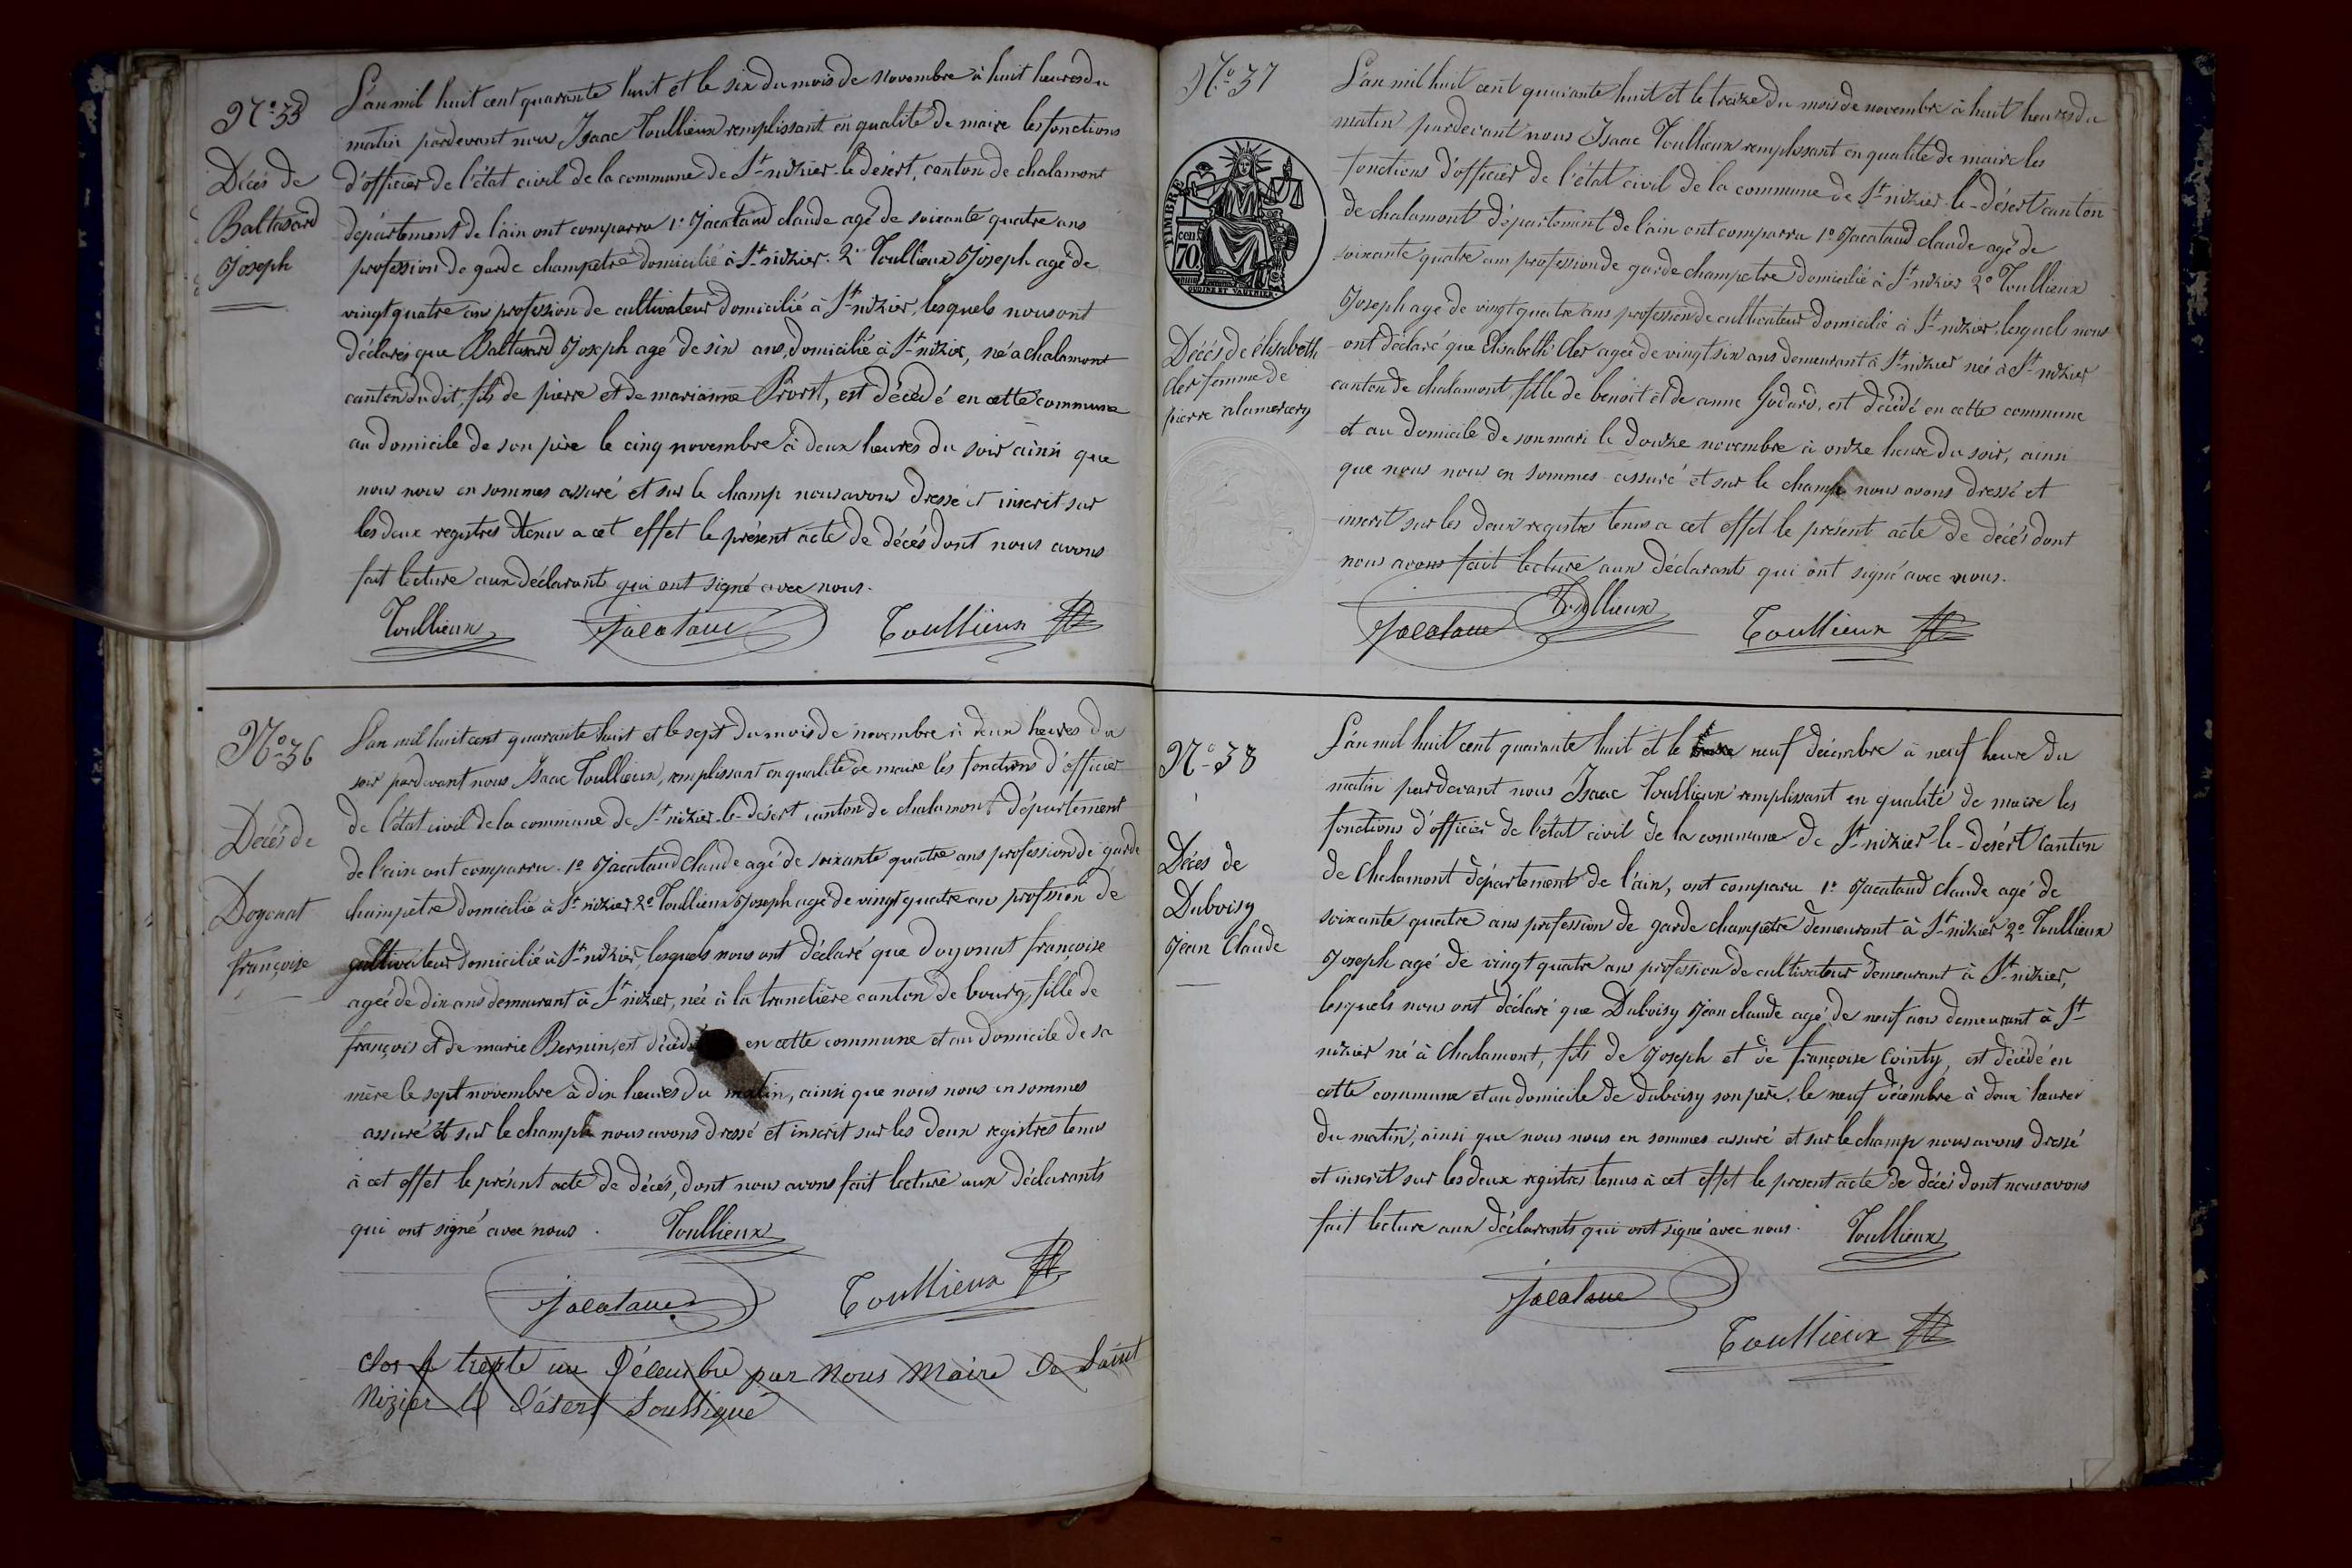 N° 35
Décès de
Baltasard
Joseph
L'an mil huit cent quarante huit et le six du mois de novembre à huit heures du
matin pardevant nous Isaac Toullieux remplissant en qualité de maire les fonctions
d'officier de l'état civil de la commune de St-nizier-le-désert, canton de chalamont
département de l'ain ont comparru 1° Jacataud claude agé de soixante quatre ans
profession de garde champetre domicilié à St-nizier. 2° Toullieux Joseph agé de
vingt quatre ans profession de cultivateur domicilié à St-nizier, lesquels nous ont
déclarés que Baltasard Joseph agé de six ans, domicilié à St-nizier, né a chalamont
canton dudit, fils de pierre et de marianne Prost, est décédé en cette commune
au domicile de son père le cinq novembre à deux heures du soir ainsi que
nous nous en sommes assuré et sur le champ nous avons dressé et inscrit sur
les deux registres tenu a cet effet le présent acte de décès dont nous avons
fait lecture aux déclarants qui ont signé avec nous.
Toullieux Jacataud Toullieux
N° 36
Décès de
Doyonat
françoise
L'an mil huit cent quarante huit et le sept du mois de novembre à deux heures du
soir pardevant nous Isaac Toullieux, remplissant en qualité de maire les fonctions d'officier
de l'état civil de la commune de St-nizier-le-désert canton de chalamont département
de l'ain ont comparru. 1° Jacataud claude agé de soixante quatre ans profession de garde
champêtre domicilié à St-nizier 2° Toullieux Joseph agé de vingt quatre ans profession de
cultivateur domicilié à St-nizier, lesquels nous ont déclaré que doyonat françoise
agée de dix ans demeurant à St-nizier, née à la tranclière canton de bourg, fille de
françois et de marie Bernin, est décédé en cette commune et au domicile de sa
mère le sept novembre à dix heures du matin, ainsi que nous nous en sommes
assuré et sur le champ nous avons dressé et inscrit sur les deux registres tenus
à cet effet le présent acte de décès, dont nous avons fait lecture aux déclarants
qui ont signé avec nous. Toullieux
Jacataud Toullieux
Clos le trente un Décembre par Nous Maire de Saint
Nizier le Désert Soussigné
N° 37
TIMBRE
cen.
70.
OUDINE ET VAUTHIER.
Décès de élisabeth
cler femme de
pierre alamercery
L'an mil huit cent quarante huit et le treize du mois de novembre à huit heures du
matin pardevant nous Isaac Toullieux remplissant en qualité de maire les
fonctions d'officier de l'état civil de la commune de St-nizier-le-désert canton
de chalamont département de l'ain ont comparru 1° Jacataud claude agé de
soixante quatre ans profession de garde champetre domicilié à St-nizier 2° Toullieux
Joseph agé de vingt quatre ans profession de cultivateur domicilié à St-nizier, lesquels nous
ont déclaré que Elisabeth Cler agée de vingt six ans demeurant à St-nizier née à St-nizier
canton de chalamont, fille de benoit et de anne Godard, est décédé en cette commune
et au domicile de son mari le douze novembre à onze heure du soir, ainsi
que nous nous en sommes assuré et sur le champ nous avons dressé et
inscrit sur les deux registres tenus a cet effet le présent acte de décès dont
nous avons fait lecture aux déclarants qui ont signé avec nous.
Jacataud Toullieux Toullieux
N° 38
Décès de
Duboisy
Jean Claude
L'an mil huit cent quarante huit et le neuf décembre à neuf heure du
matin pardevant nous Isaac Toullieux remplissant en qualité de maire les
fonctions d'officier de l'état civil de la commune de St-nizier-le-désert canton
de Chalamont département de l'ain, ont comparu 1° Jacataud claude agé de
soixante quatre ans profession de garde champêtre demeurant à St-nizier 2° Toullieux
Joseph agé de vingt quatre ans profession de cultivateur demeurant à St-nizier,
lesquels nous ont déclaré que Duboisy Jean claude agé de neuf ans demeurant à St-
nizier né à Chalamont, fils de Joseph et de françoise Cointy, est décédé en
cette commune et au domicile de duboisy son père, le neuf décembre à deux heures
du matin, ainsi que nous nous en sommes assuré et sur le champ nous avons dressé
et inscrit sur les deux registres tenus à cet effet le present acte de décès dont nous avons
fait lecture aux déclarants qui ont signé avec nous. Toullieux
Jacataud
Toullieux